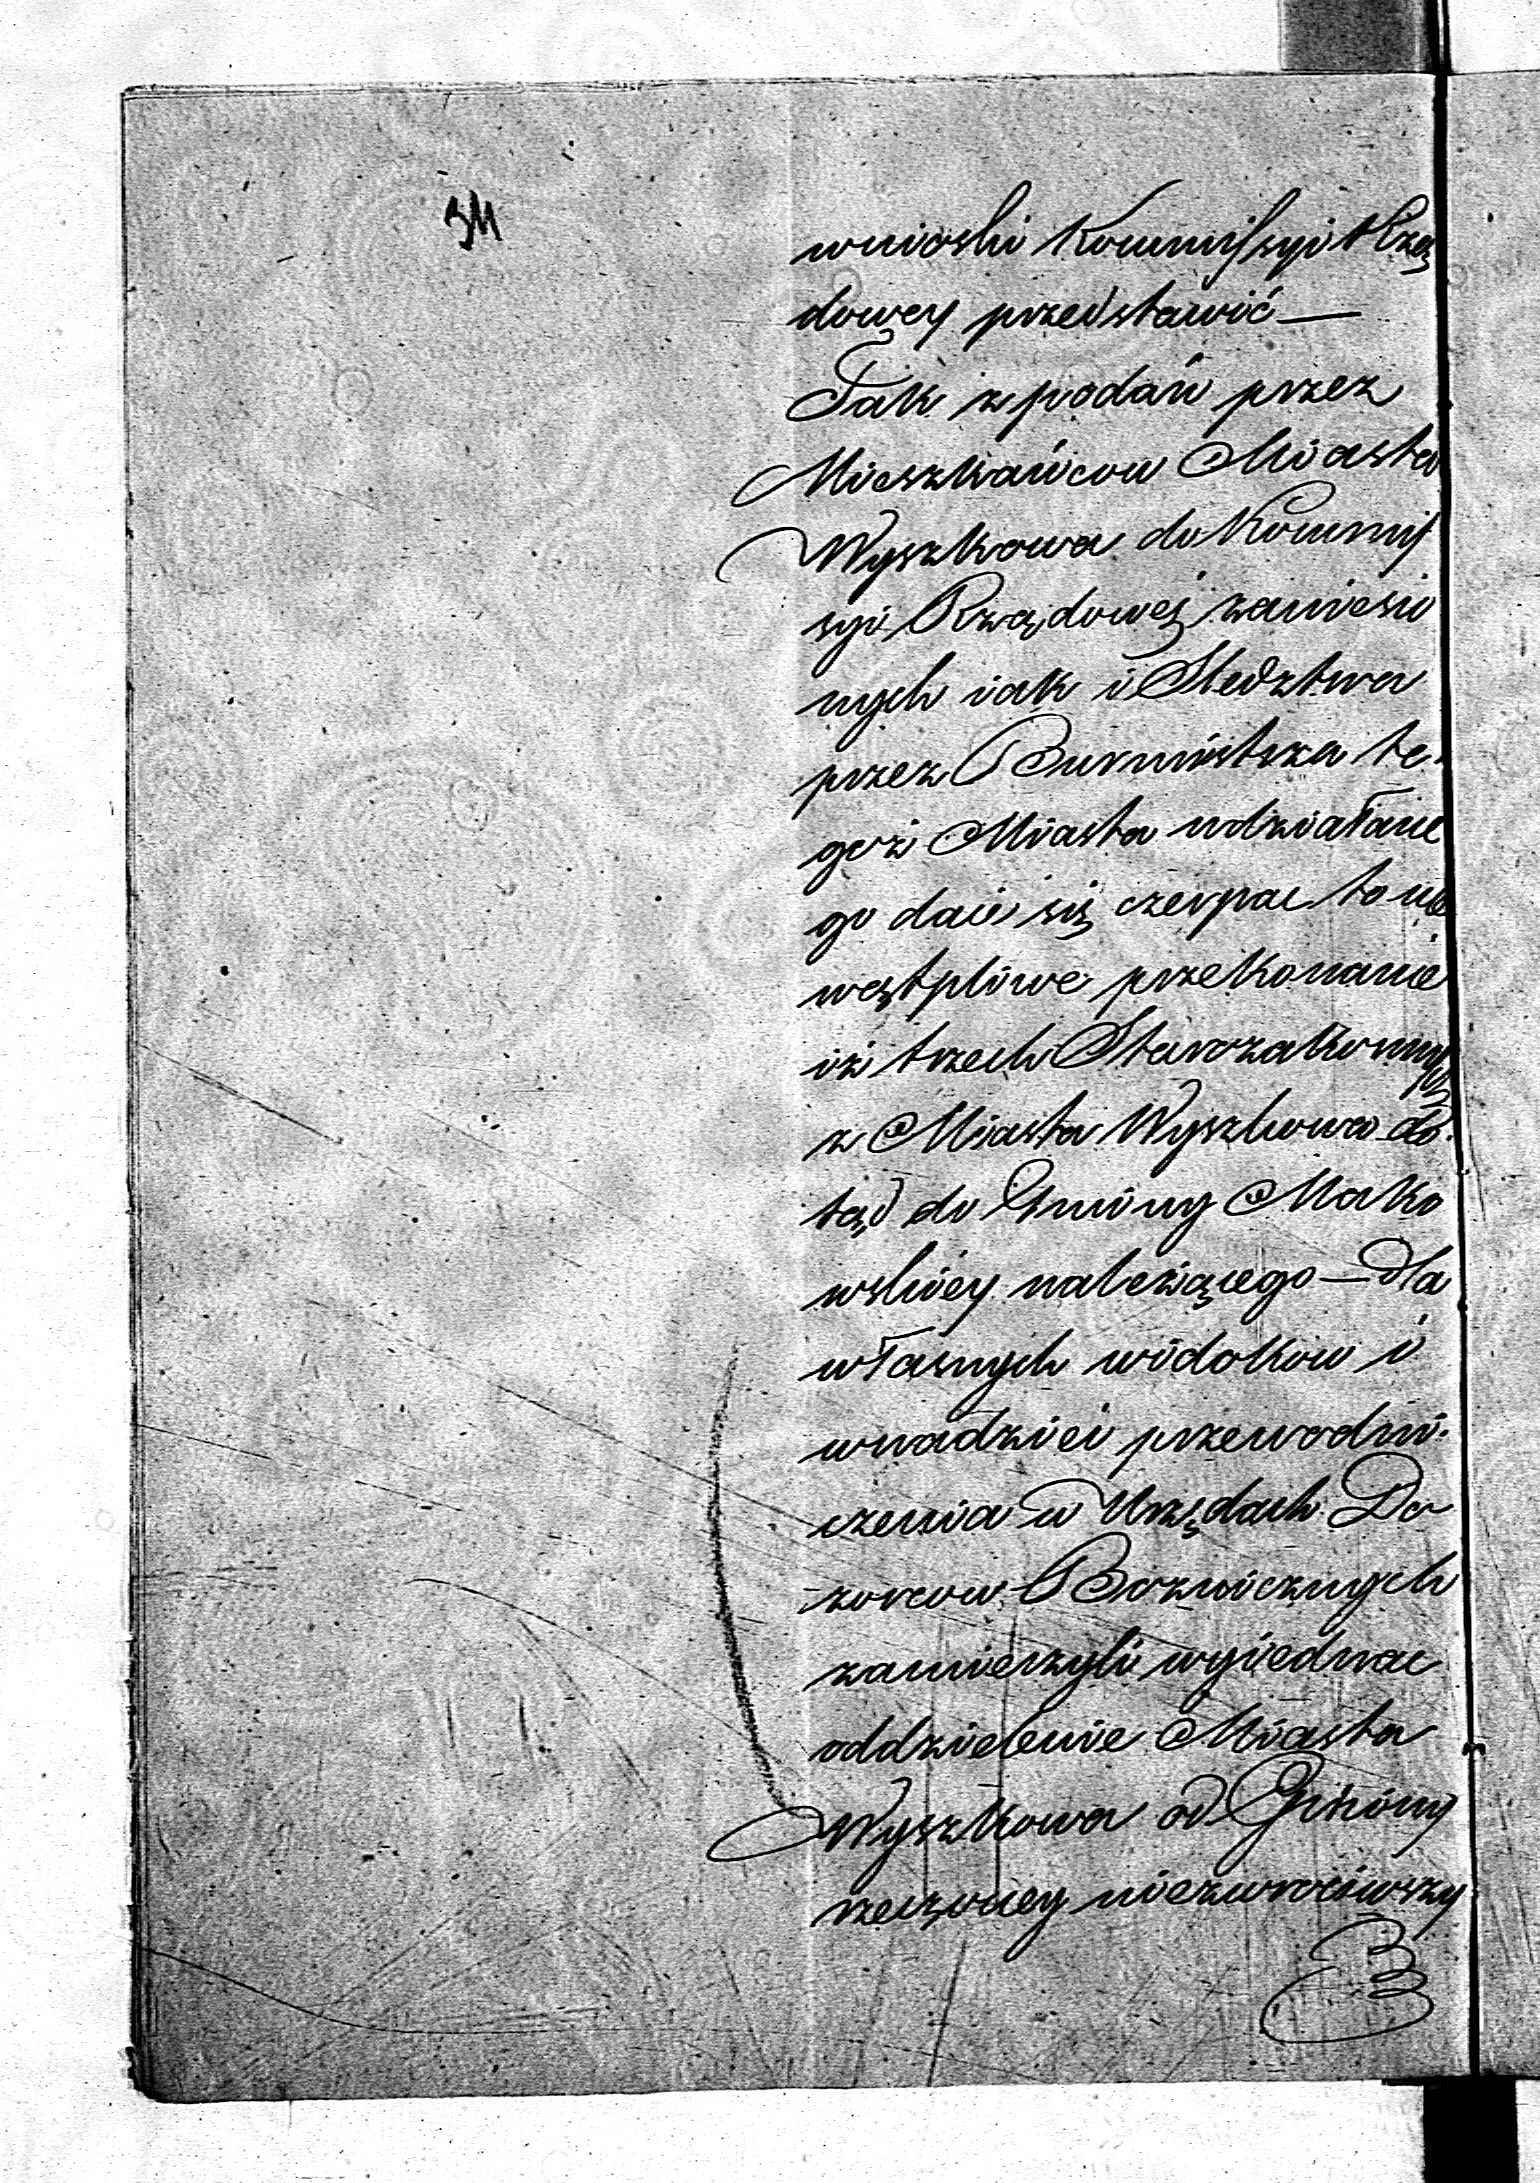 311
wnioski Kommissyi Rzą
dowey przedstawić —
Tak z podań przez
Mieszkańcow Miasta
Wyszkowa do Kommis
syi Rządowej zaniesio
nych iak i Sledztwa
przez Burmistrza te-
goż Miasta udziałane
go daie się czerpac to nie
wątpliwe przekonanie
iż trzech Starozakonnych
z Miasta Wyszkowa do-
tąd do Gminy Mako
wskiey należącego — dla
własnych widokow i
w nadziei przewodni-
czenia w Urzędach Do
zorcow Boznicznych
zamierzyli wyiednac
oddzielenie Miasta
Wyszkowa od Gminy
rzeczoney niezwrociwszy